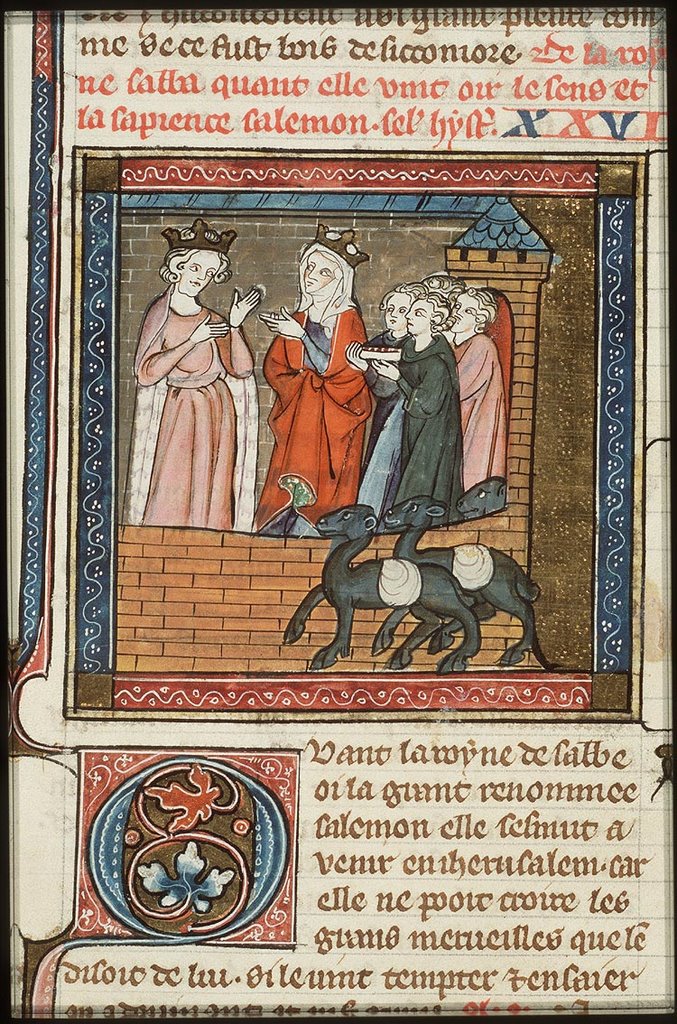 me se ce fust bois de siccomore De la roy
ne sassa quant elle vint oir le sens et
la sapience salemon. sel' hyst'. XXVI
Quant la royne de sabbe
oi la grant renommee
salemon elle sesmut a
venir en iherusalem. car
elle ne pooit croire les
grans merueilles que lē
disoit de lui. Si le vint tempter ⁊ ensaier